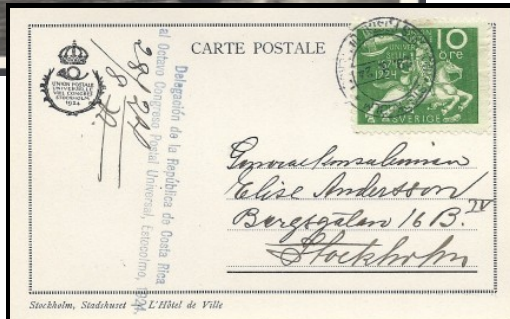 CARTE POSTALE
UNION POSTALE
UNIVERSELLE
VIII. CONGRÈS
STOCKHOLM
1924
Delegación de la República de Costa Rica
al Octavo Congreso Postal Universal, Estocolmo, 1924.
28/8 24
10
öre
1924
SVERIGE
Elise Andersson
Bergsgatan 16 B. IV
Stockholm
Stockholm, Stadshuset - L'Hôtel de Ville